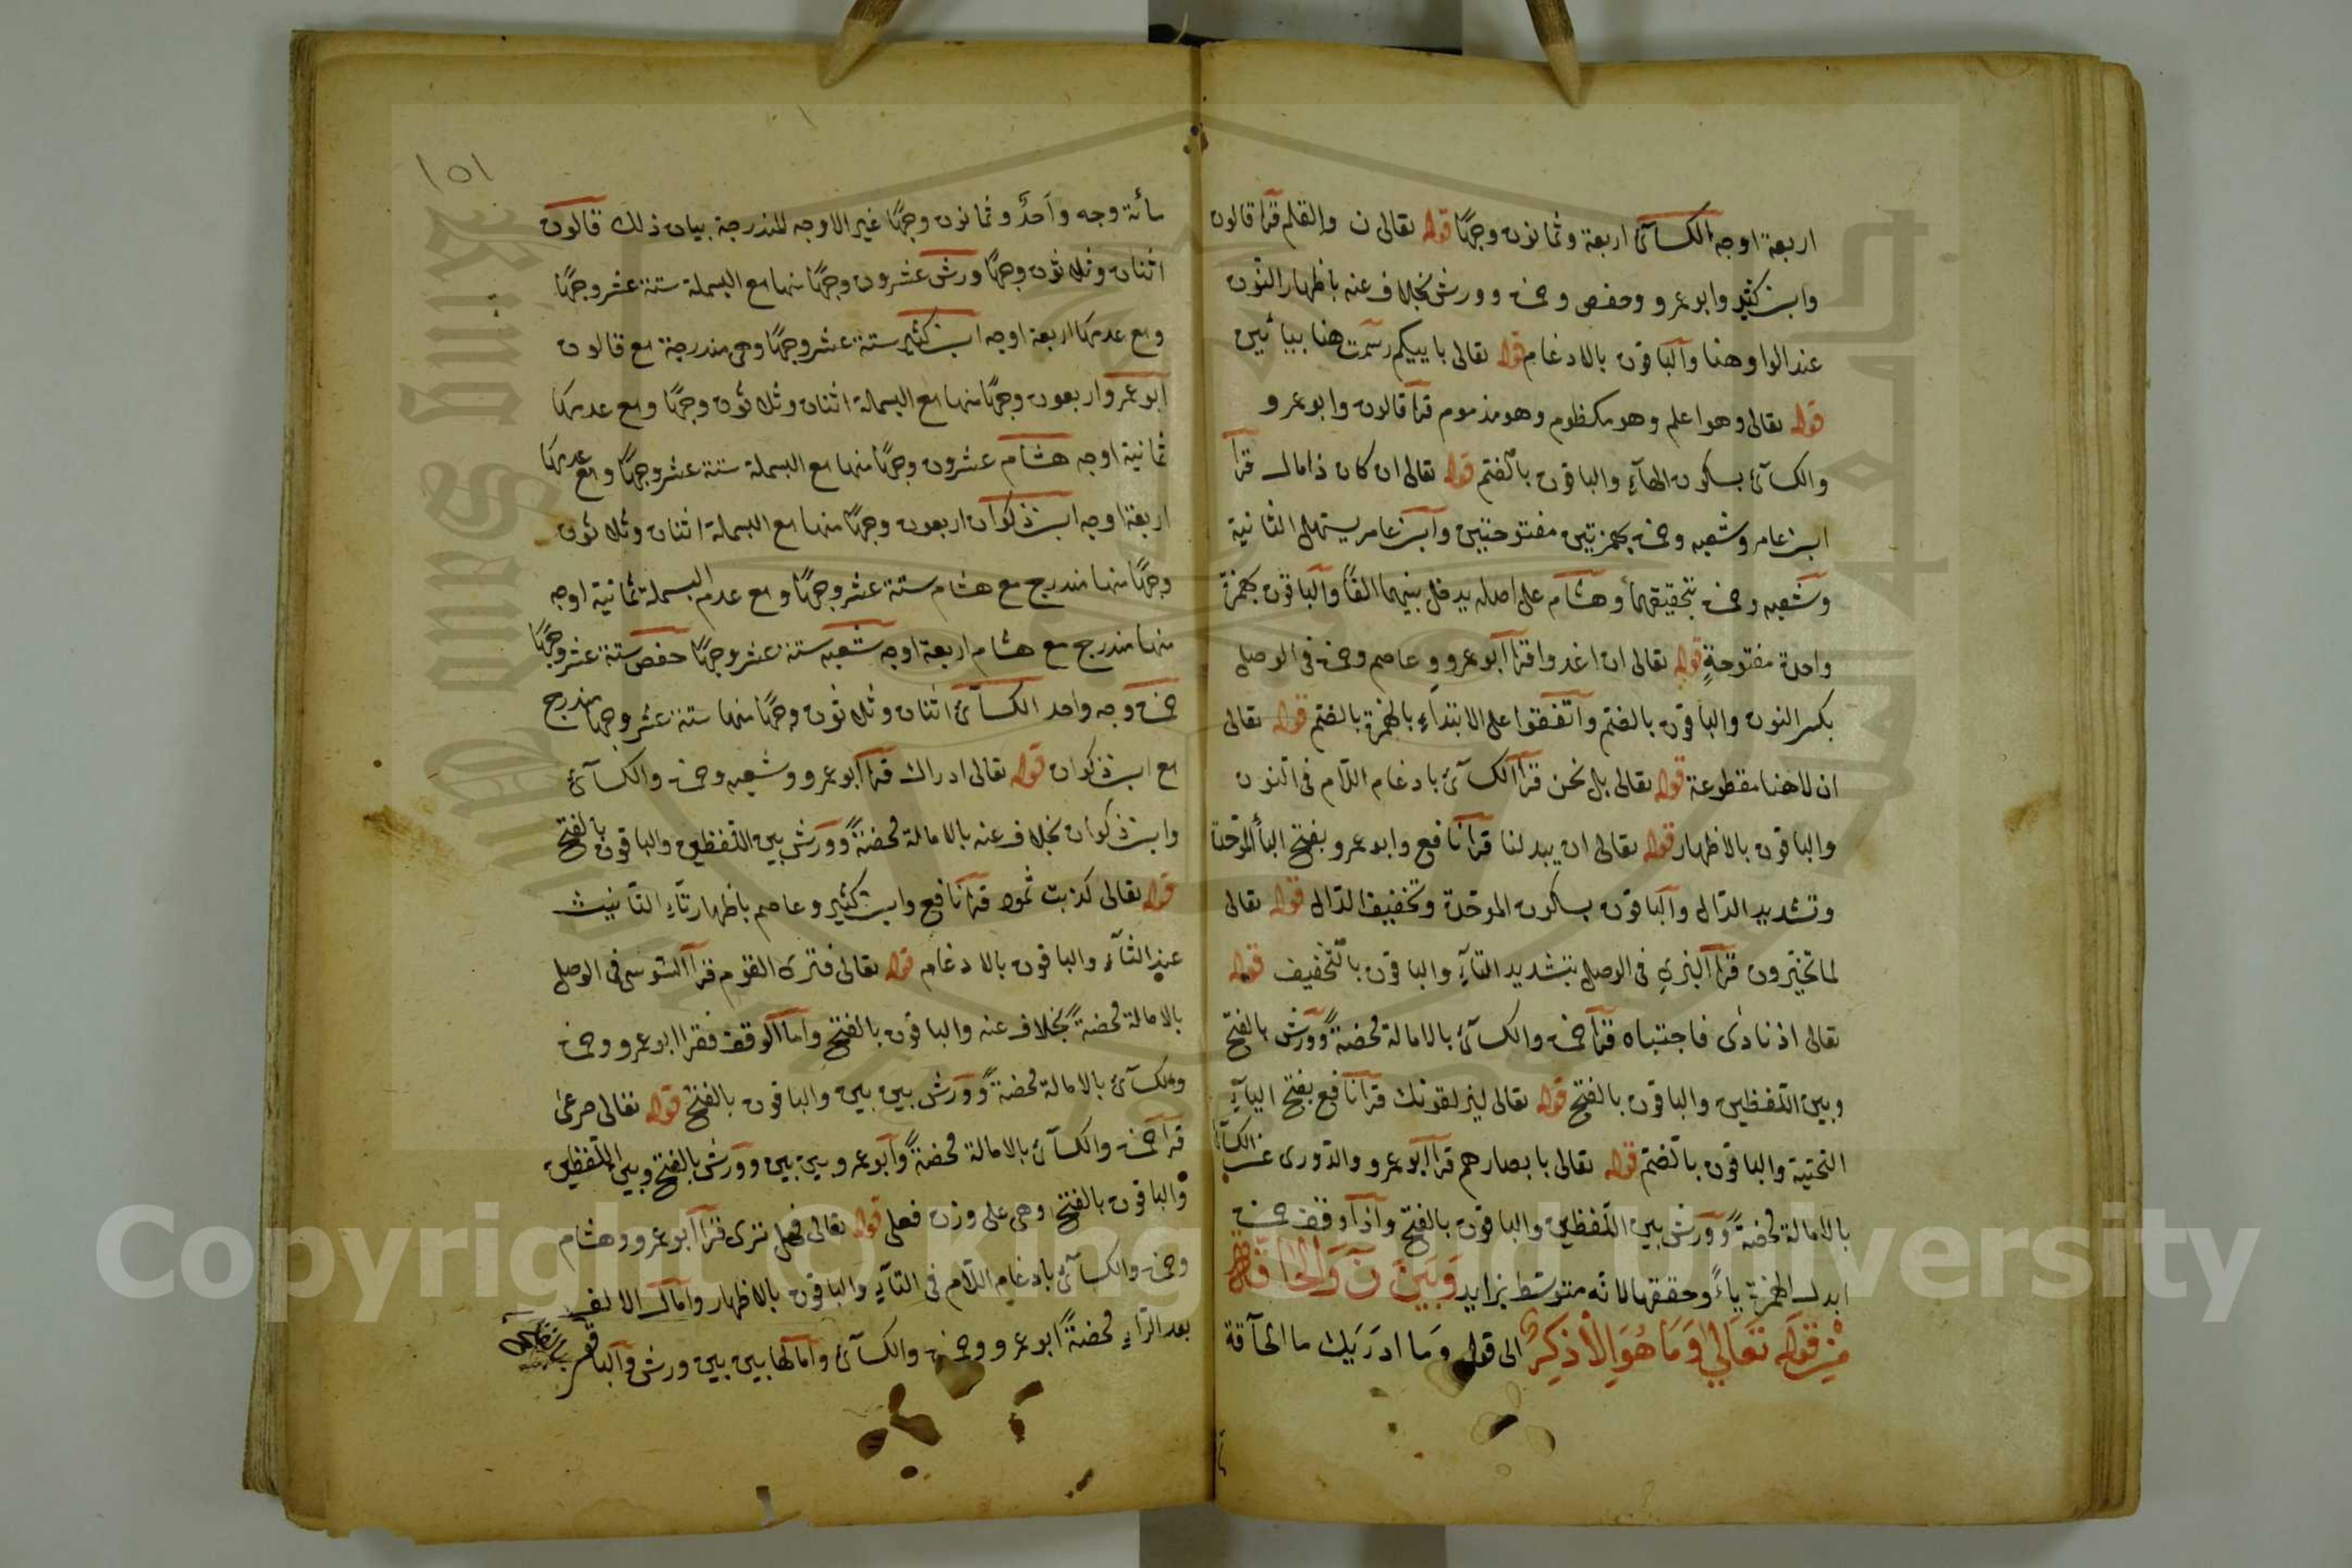 اربعة اوجه الكسائى اربعة وثمانون وجها قوله تعالى ن والقلم قرا قالون
وابن كثير وابو عمرو وحفص وحمزة وورش بخلاف عنه باظهار النون
عند الواو هنا والباقون بالادغام قوله تعالى باييكم رسمت هنا بيائين
قوله تعالى وهو اعلم وهو مكظوم وهو مذموم قرا قالون وابو عمرو
والكسائى بسكون الهاء والباقون بالضم قوله تعالى ان كان ذا مال قرا
ابن عامر وشعبه وحمزة بهمزتين مفتوحتين وابن عامر يسهل الثانية
وشعبه وحمزة بتحقيقهما وهشام على اصله يدخل بينهما الفا والباقون بهمزة
واحدة مفتوحة قوله تعالى ان اغدوا قرا ابو عمرو وعاصم وحمزة فى الوصل
بكسر النون والباقون بالضم واتفقوا على الابتداء بالهمزة بالضم قوله تعالى
ان لا هنا مقطوعة قوله تعالى بل نحن قرا الكسائى بادغام اللام فى النون
والباقون بالاظهار قوله تعالى ان يبدلنا قرا نافع وابو عمرو بفتح الباء الموحدة
وتشديد الدال والباقون بسكون الموحدة وتخفيف الدال قوله تعالى
لما تخيرون قرا البزى فى الوصل بتشديد التاء والباقون بالتخفيف قوله
تعالى اذ نادى فاجتباه قرا حمزة والكسائى بالامالة محضة وورش بالفتح
وبين اللفظين والباقون بالفتح قوله تعالى ليزلقونك قرا نافع بفتح الياء
التحتية والباقون بالضم قوله تعالى بابصارهم قرا ابو عمرو والدورى عن الكسائى
بالامالة محضة وورش بين اللفظين والباقون بالفتح واذا وقف حمزة
ابدل الهمزة ياء وحققها لانه متوسط بزايد وبين ن والحاقة
من قوله تعالى وما هو الا ذكر الى قوله وما ادريك ما الحاقة
١٥١
مائة وجه واحد وثمانون وجها غير الاوجه المندرجة بيان ذلك قالون
اثنان وثلاثون وجها ورش عشرون وجها منها مع البسملة ستة عشر وجها
ومع عدمها اربعة اوجه ابن كثير ستة عشر وجها وهى مندرجة مع قالون
ابو عمرو اربعون وجها منها مع البسملة اثنان وثلاثون وجها ومع عدمها
ثمانية اوجه هشام عشرون وجها منها مع البسملة ستة عشر وجها ومع عدمها
اربعة اوجه ابن ذكوان اربعون وجها منها مع البسملة اثنان وثلاثون
وجها منها مندرج مع هشام ستة عشر وجها ومع عدم البسملة ثمانية اوجه
منها مندرج مع هشام اربعة اوجه شعبه ستة عشر وجها حفص ستة عشر وجها
حمزة وجه واحد الكسائى اثنان وثلاثون وجها منها ستة عشر وجها مندرج
مع ابن ذكوان قوله تعالى ادراك قرا ابو عمرو وشعبه وحمزة والكسائى
وابن ذكوان بخلاف عنه بالامالة محضة وورش بين اللفظين والباقون بالفتح
قوله تعالى كذبت ثمود قرا نافع وابن كثير وعاصم باظهار تاء التانيث
عند الثاء والباقون بالادغام قوله تعالى فترى القوم قرا السوسى فى الوصل
بالامالة محضة بخلاف عنه والباقون بالفتح واما الوقف فقرا ابو عمرو وحمزة
والكسائى بالامالة محضة وورش بين بين والباقون بالفتح قوله تعالى صرعى
قرا حمزة والكسائى بالامالة محضة وابو عمرو بين بين وورش بالفتح وبين اللفظين
والباقون بالفتح وهى على وزن فعلى قوله تعالى فهل ترى قرا ابو عمرو وهشام
وحمزة والكسائى بادغام اللام فى التاء والباقون بالاظهار وامال الالف
بعد الراء محضة ابو عمرو وحمزة والكسائى وامالها بين بين ورش والباقون
Copyright © King Saud University